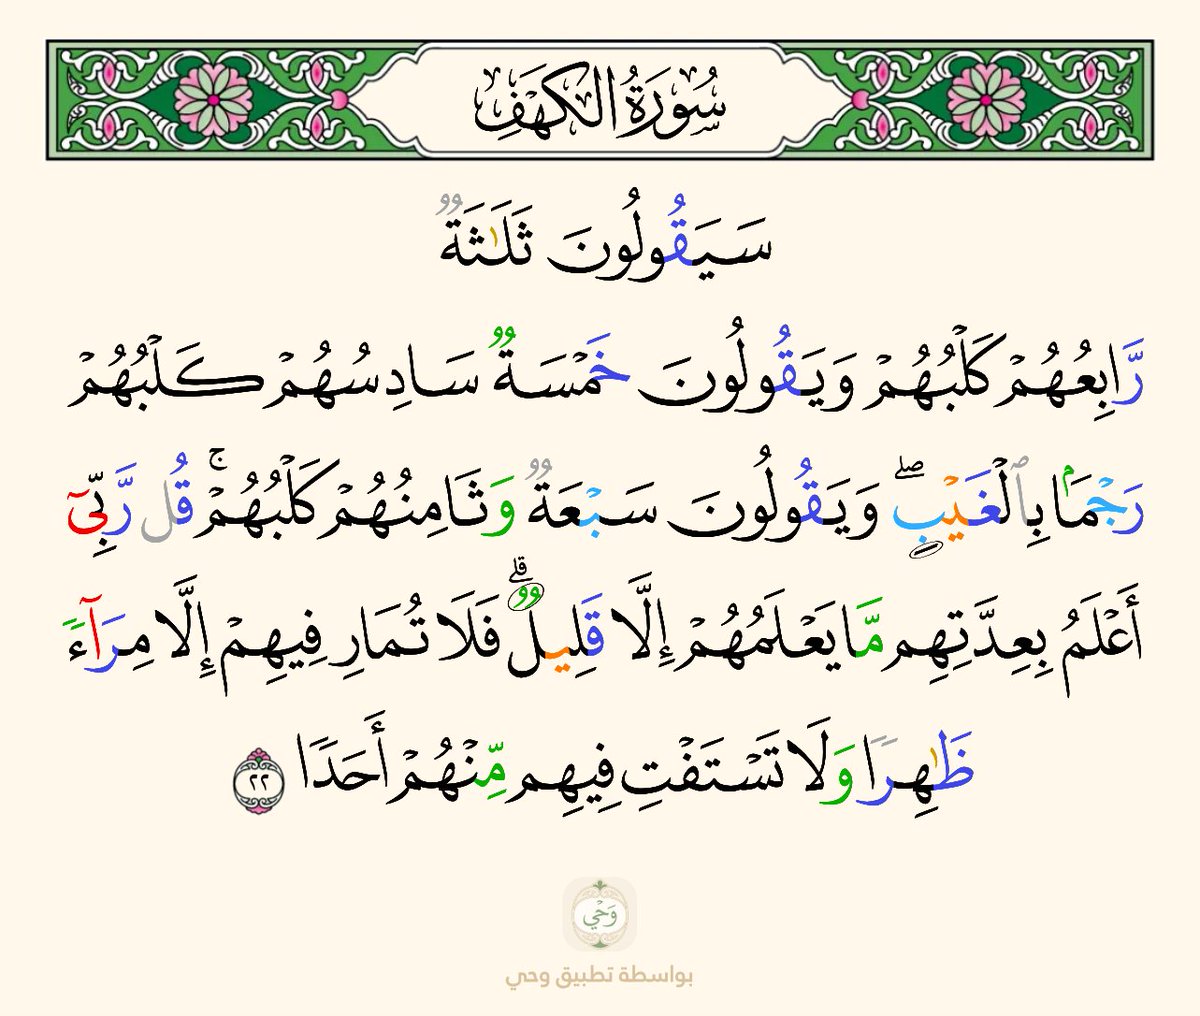 سُورَةُ الكَهْفِ
سَيَقُولُونَ ثَلَٰثَةٌ
رَّابِعُهُمْ كَلْبُهُمْ وَيَقُولُونَ خَمْسَةٌ سَادِسُهُمْ كَلْبُهُمْ
رَجْمَۢا بِٱلْغَيْبِۖ وَيَقُولُونَ سَبْعَةٌ وَثَامِنُهُمْ كَلْبُهُمْۚ قُل رَّبِّىٓ
أَعْلَمُ بِعِدَّتِهِم مَّا يَعْلَمُهُمْ إِلَّا قَلِيلٌۗ فَلَا تُمَارِ فِيهِمْ إِلَّا مِرَآءً
ظَٰهِرًا وَلَا تَسْتَفْتِ فِيهِم مِّنْهُمْ أَحَدًا ٢٢
وَحْي
بواسطة تطبيق وحي